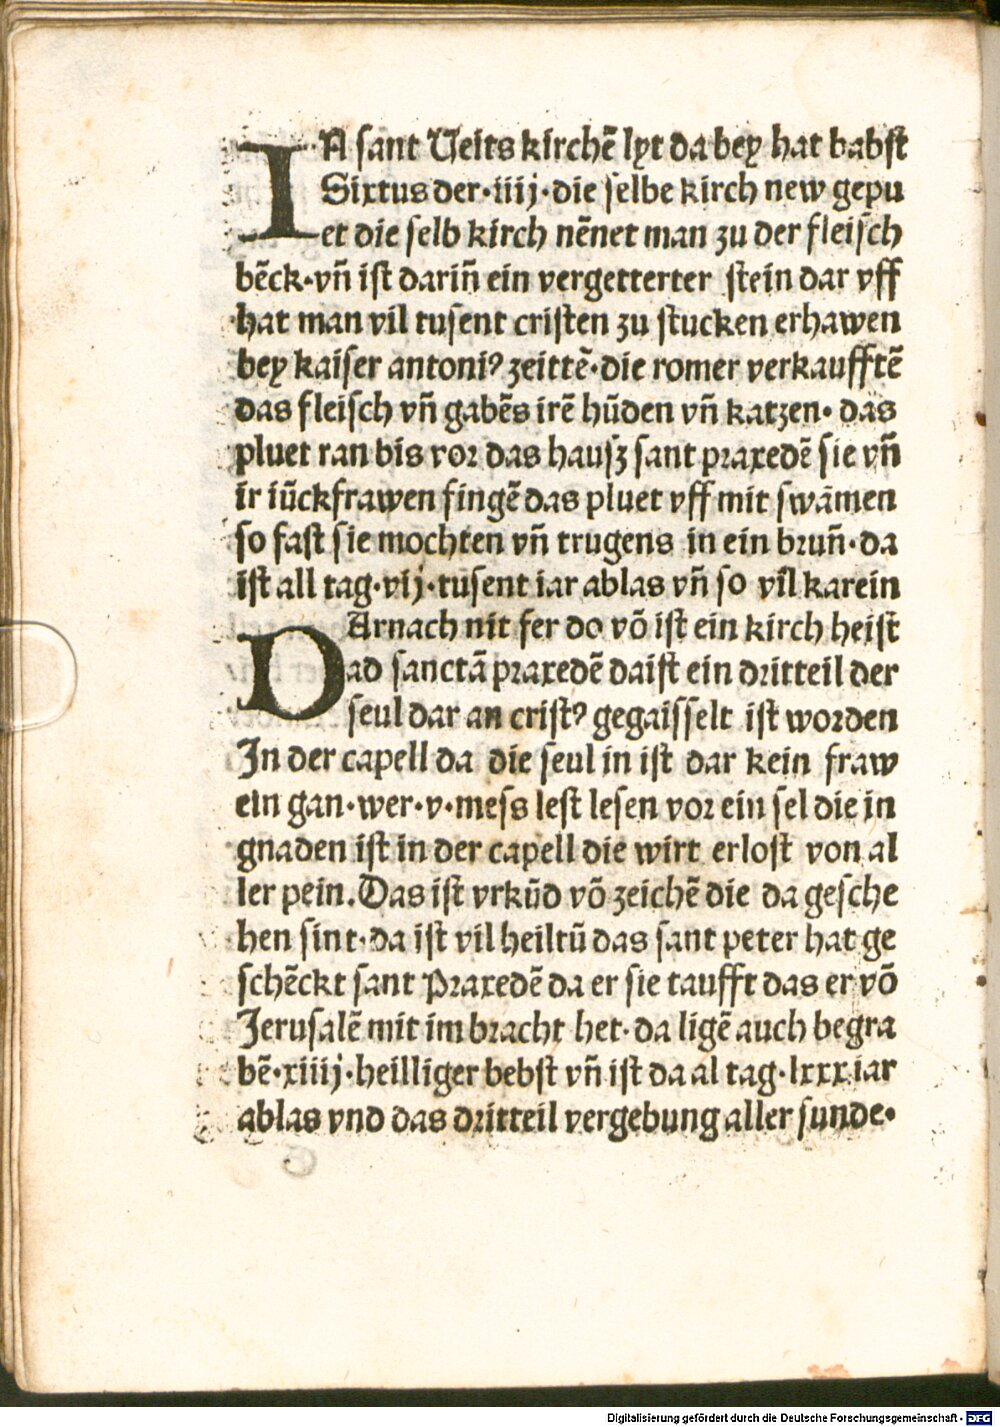 IN sant Veits kirchē lyt da bey hat babst
Sixtus der·iiij·die selbe kirch new gepu
et die selb kirch nēnet man zu der fleisch
bēck·vn̄ ist darin̄ ein vergetterter stein dar vff
hat man vil tusent cristen zu stucken erhawen
bey kaiser antoniꝰ zeittē·die romer verkaufftē
das fleisch vn̄ gabēs irē hūden vn̄ katzen· das
pluet ran bis vor das hausz sant praxedē sie vn̄
ir iūckfrawen fingē das pluet vff mit swāmen
so fast sie mochten vn̄ trugens in ein brun̄·da
ist all tag·vij·tusent iar ablas vn̄ so vil karein
DArnach nit fer do vō ist ein kirch heist
ad sanctā praxedē da ist ein dritteil der
seul dar an cristꝰ gegaisselt ist worden
In der capell da die seul in ist dar kein fraw
ein gan·wer·v·mess lest lesen vor ein sel die in
gnaden ist in der capell die wirt erlost von al
ler pein.Das ist vrkūd vō zeichē die da gesche
hen sint·da ist vil heiltū das sant peter hat ge
schēckt sant Praxedē da er sie taufft das er vō
Jerusalē mit im bracht het·da ligē auch begra
bē·xiiij·heilliger bebst vn̄ ist da al tag·lxxx iar
ablas vnd das dritteil vergebung aller sunde·
Digitalisierung gefördert durch die Deutsche Forschungsgemeinschaft - DFG